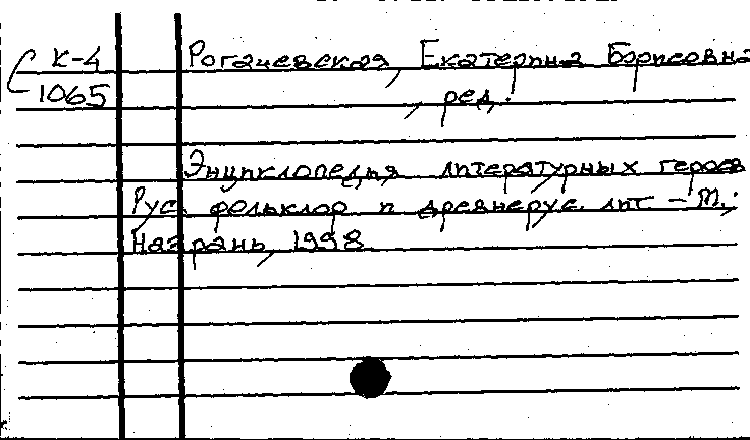 К-4 Рогачевская, Екатерина Борисовна
1065 , ред.
Энциклопедия литературных героев
Рус. фольклор и древнерус. лит. - М.:
Аграрнь, 1998